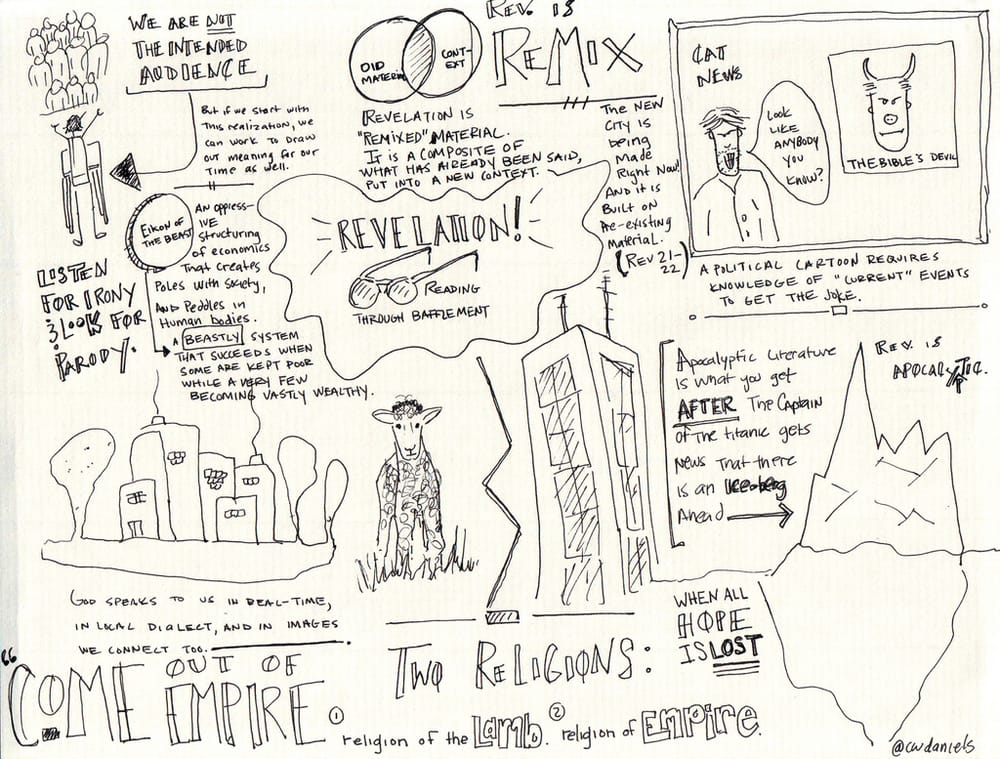 WE ARE NOT
THE INTENDED
AUDIENCE
But if we start with
This realization, we
can work to draw
out meaning for our
time as well.
OlD
MATERIAL
CONT-
EXT
Rev. is
REMIX
REVELATION IS
"REMIXED" MATERIAL.
IT IS A COMPOSITE OF
WHAT HAS ALREADY BEEN SAID,
PUT INTO A NEW CONTEXT.
The New
City is
being
Made
Right Now!
And it is
Built on
Pre-existing
Material.
(Rev 21-
22)
CAT
NEWS
Look
LIKE
ANYBODY
YOU
KNOW?
THE BIBLE'S DEVIL
A POLITICAL CARTOON REQUIRES
KNOWLEDGE OF "CURRENT" EVENTS
TO GET THE JOKE.
Eikon of
THE BEAST
AN oppress-
IVE
structuring
of economics
That creates
Poles with society,
AND Peddles in
Human bodies.
A BEASTLY SYSTEM
THAT SUCCEEDS WHEN
SOME ARE KEPT POOR
WHILE A VERY FEW
BECOMING VASTLY WEALTHY.
LISTEN
FOR IRONY
& LOOK FOR
PARODY.
REVELATION!
READING
THROUGH BAFFLEMENT
Rev. is
APOCALYPTIC.
Apocalyptic Literature
Is what you get
AFTER The Captain
of the titanic gets
News That there
is an Iceberg
Ahead
WHEN ALL
HOPE
IS LOST
GOD SPEAKS TO US IN REAL-TIME,
IN LOCAL DIALECT, AND IN IMAGES
WE CONNECT TOO.
"COME OUT OF
EMPIRE.
TWO RELIGIONS:
① religion of the Lamb. ② religion of Empire.
@cwdaniels